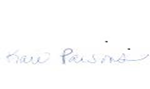 Kari Parsons